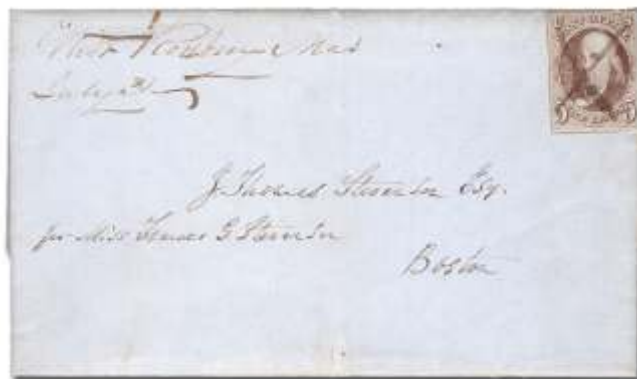 West Roxbury Mas
July
J. Thomas Stevenson Esq.
for Miss Frances G Stevenson
Boston